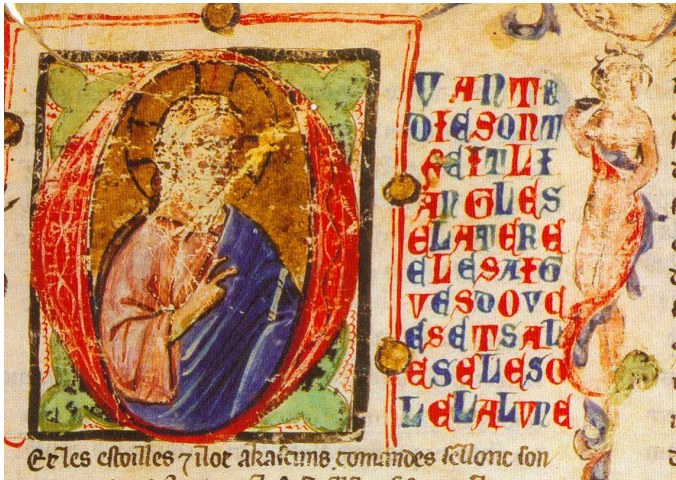 VANTE
DIESONT
FEITLI
ANGLES
ELATERE
ELESAIG
VESDOVC
ESETSAL
ESELESO
LELALVNE
Et les estoilles ⁊ ilot akascuns comandes sellonc son